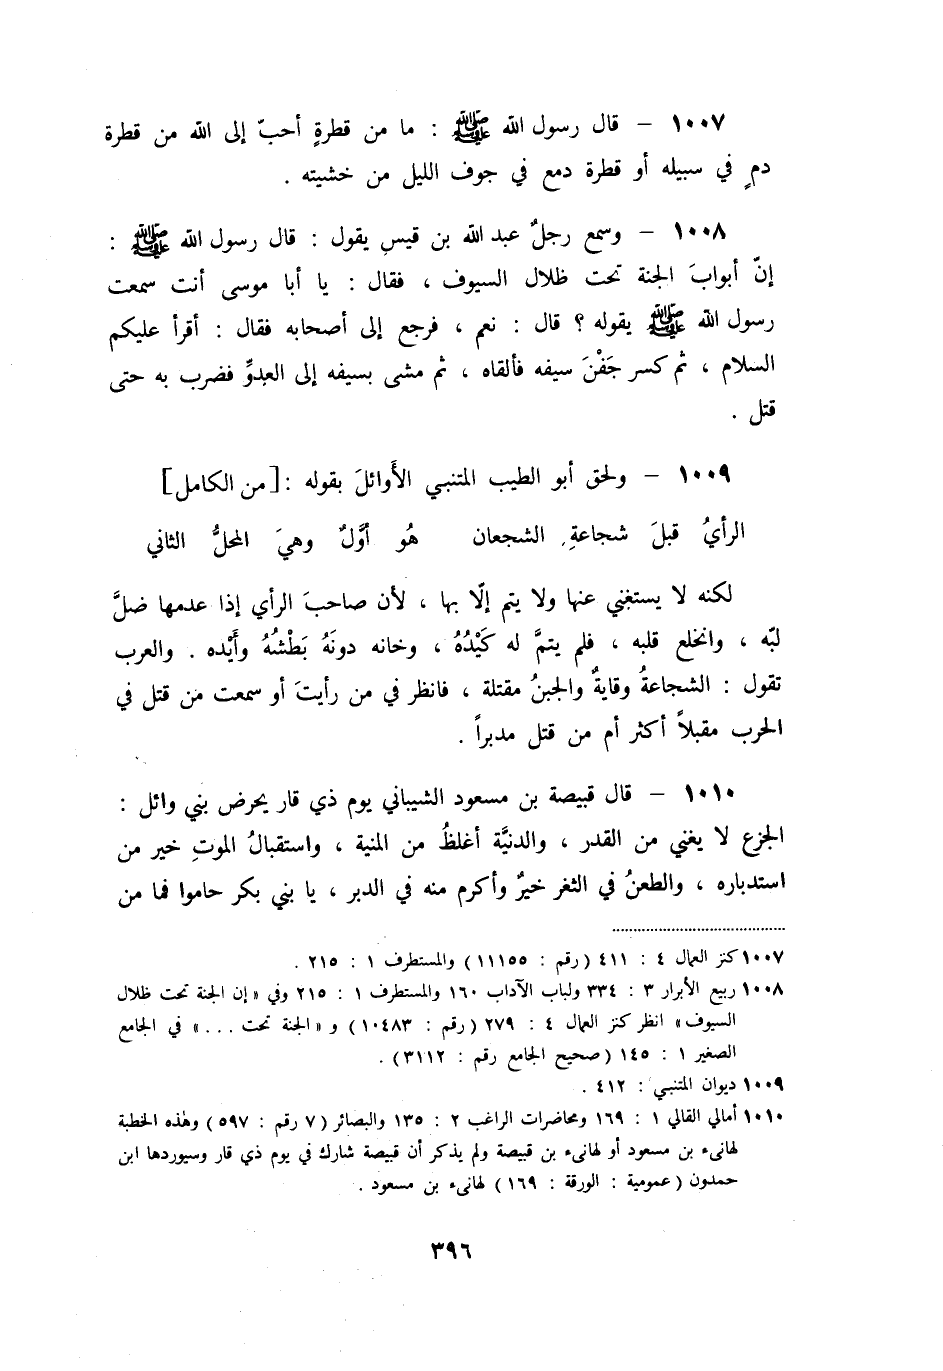 ١٠٠٧ – قال رسول الله ﷺ : ما من قطرةٍ أحبّ إلى الله من قطرة
دمٍ في سبيله أو قطرة دمع في جوف الليل من خشيته .
١٠٠٨ – وسمع رجلٌ عبد الله بن قيسٍ يقول : قال رسول الله ﷺ :
إنّ أبوابَ الجنة تحت ظلال السيوف ، فقال : يا أبا موسى أنت سمعت
رسول الله ﷺ يقوله ؟ قال : نعم ، فرجع إلى أصحابه فقال : أقرأ عليكم
السلام ، ثم كسر جَفْنَ سيفه فألقاه ، ثم مشى بسيفه إلى العدوِّ فضرب به حتى
قتل .
١٠٠٩ – ولحق أبو الطيب المتنبي الأَوائلَ بقوله : [من الكامل]
الرأيُ قبلَ شجاعةِ الشجعان هُو أوَّلٌ وهيَ المحلُّ الثاني
لكنه لا يستغني عنها ولا يتم إلّا بها ، لأن صاحبَ الرأي إذا عدمها ضلَّ
لبّه ، وانخلع قلبه ، فلم يتمَّ له كَيْدُهُ ، وخانه دونَهُ بَطْشُهُ وأَيْده . والعرب
تقول : الشجاعةُ وقايةٌ والجبنُ مقتلة ، فانظر في من رأيتَ أو سمعت من قتل في
الحرب مقبلاً أكثر أم من قتل مدبراً .
١٠١٠ – قال قبيصة بن مسعود الشيباني يوم ذي قار يحرض بني وائل :
الجزع لا يغني من القدر ، والدنيَّة أغلظُ من المنية ، واستقبالُ الموتِ خير من
استدباره ، والطعنُ في الثغر خيرٌ وأكرم منه في الدبر ، يا بني بكر حاموا فما من
١٠٠٧ كنز العمال ٤ : ٤١١ (رقم : ١١١٥٥) والمستطرف ١ : ٢١٥ .
١٠٠٨ ربيع الأبرار ٣ : ٣٣٤ ولباب الآداب ١٦٠ والمستطرف ١ : ٢١٥ وفي «إن الجنة تحت ظلال
السيوف» انظر كنز العمال ٤ : ٢٧٩ (رقم : ١٠٤٨٣) و «الجنة تحت ...» في الجامع
الصغير ١ : ١٤٥ (صحيح الجامع رقم : ٣١١٢) .
١٠٠٩ ديوان المتنبي : ٤١٢ .
١٠١٠ أمالي القالي ١ : ١٦٩ ومحاضرات الراغب ٢ : ١٣٥ والبصائر (٧ رقم : ٥٩٧) وهذه الخطبة
لهانىء بن مسعود أو لهانىء بن قبيصة ولم يذكر أن قبيصة شارك في يوم ذي قار وسيوردها ابن
حمدون (عمومية : الورقة : ١٦٩) لهانىء بن مسعود .
٣٩٦